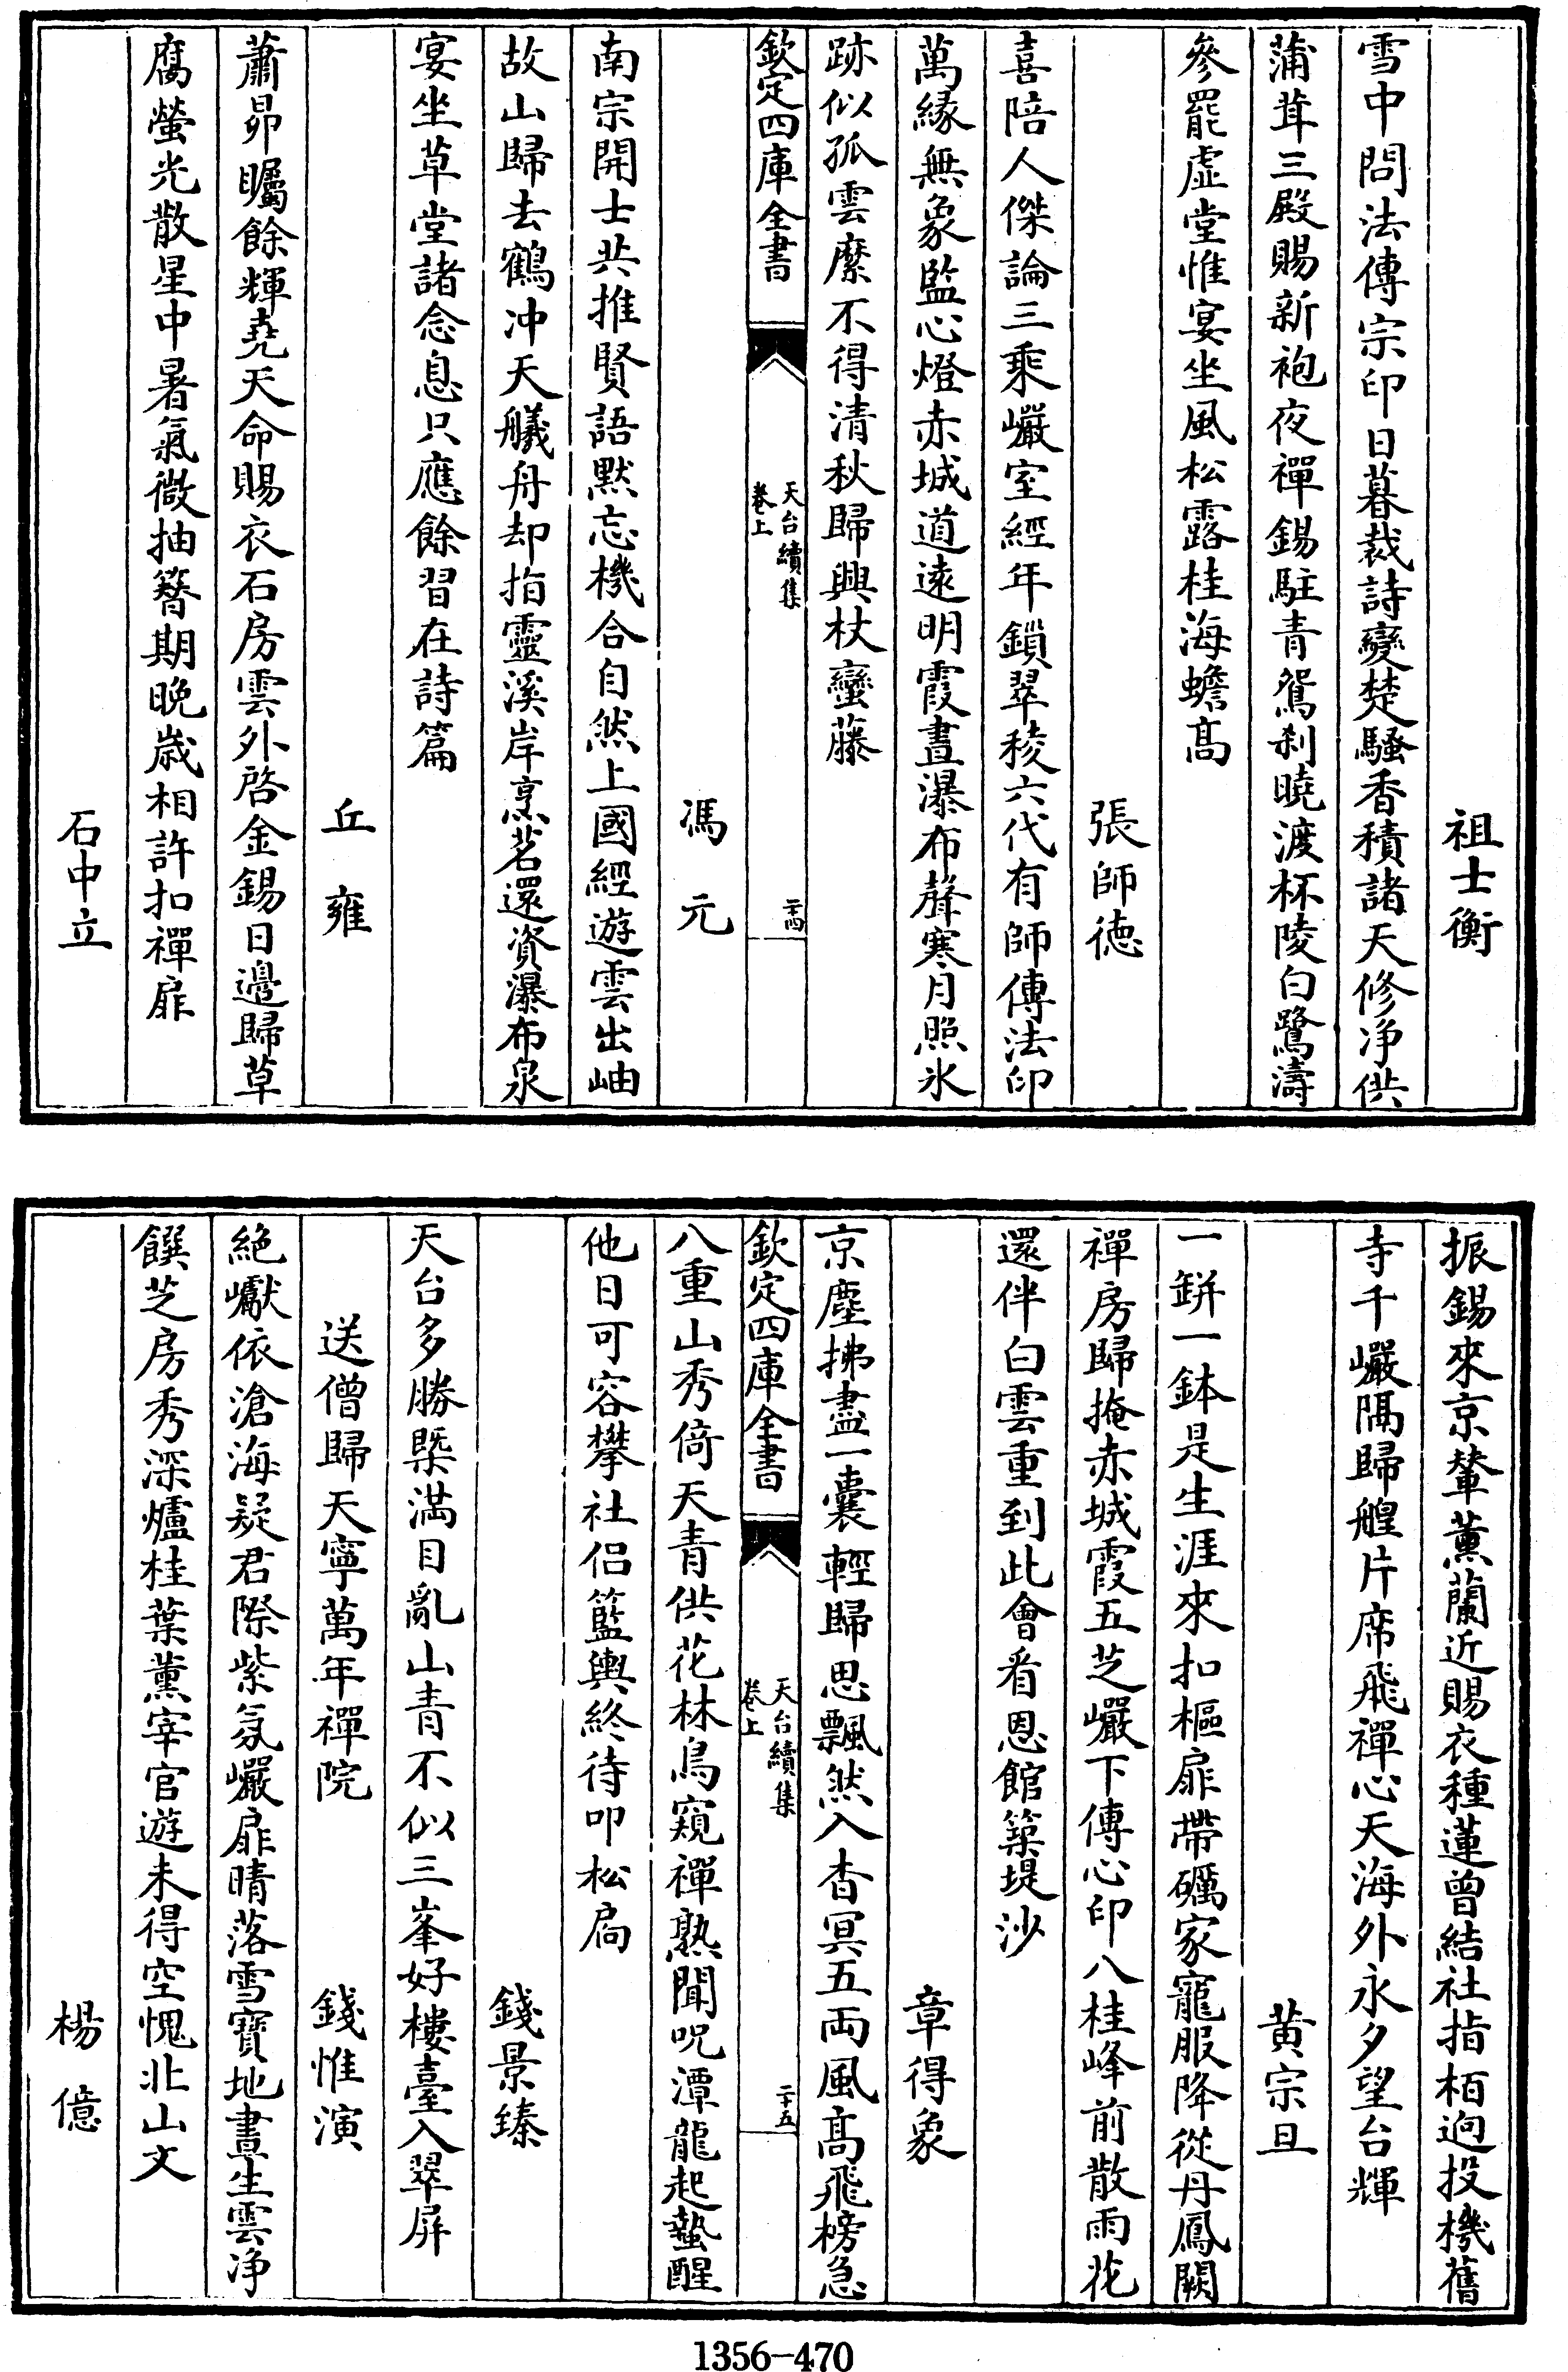 祖士衡
雪中問法傳宗印日暮裁詩變楚騷香積諸天修净供
蒲茸三殿賜新袍夜禪錫駐青鴛刹曉渡杯陵白鷺濤
參罷虛堂惟宴坐風松露桂海蟾髙
張師德
喜陪人傑論三乘巖室經年鎖翠稜六代有師傳法印
萬緣無象監心燈赤城道遠明霞晝瀑布聲寒月照氷
跡似孤雲縻不得清秋歸興杖蠻藤
欽定四庫全書
天台續集
卷上
二十四
馮元
南宗開士共推賢語默忘機合自然上國經遊雲出岫
故山歸去鶴冲天艤舟却指靈溪岸烹茗還資瀑布泉
宴坐草堂諸念息只應餘習在詩篇
丘雍
蕭昴矚餘輝堯天命賜衣石房雲外啓金錫日邊歸草
腐螢光散星中暑氣微抽簪期晚歲相許扣禪扉
石中立
振錫來京輦薰蘭近賜衣種蓮曾結社指栢逈投機舊
寺千巖隅歸艎片席飛禪心天海外永夕望台輝
黄宗旦
一缾一鉢是生涯來扣樞扉帶礪家寵服降從丹鳳闕
禪房歸掩赤城霞五芝巖下傳心印八桂峰前散雨花
還伴白雲重到此會看恩館築堤沙
章得象
京塵拂盡一囊輕歸思飄然入杳冥五両風髙飛榜急
欽定四庫全書
天台續集
卷上
二十五
八重山秀倚天青供花林鳥窺禪熟聞呪潭龍起蟄醒
他日可容攀社侣籃輿終待叩松扃
錢景臻
天台多勝槩滿目亂山青不似三峯好樓臺入翠屏
送僧歸天寧萬年禪院 錢惟演
絶巘依滄海疑君際紫氛巖扉晴落雪寳地晝生雲净
饌芝房秀深爐桂葉薰宰官遊未得空愧北山文
楊億
1356-470